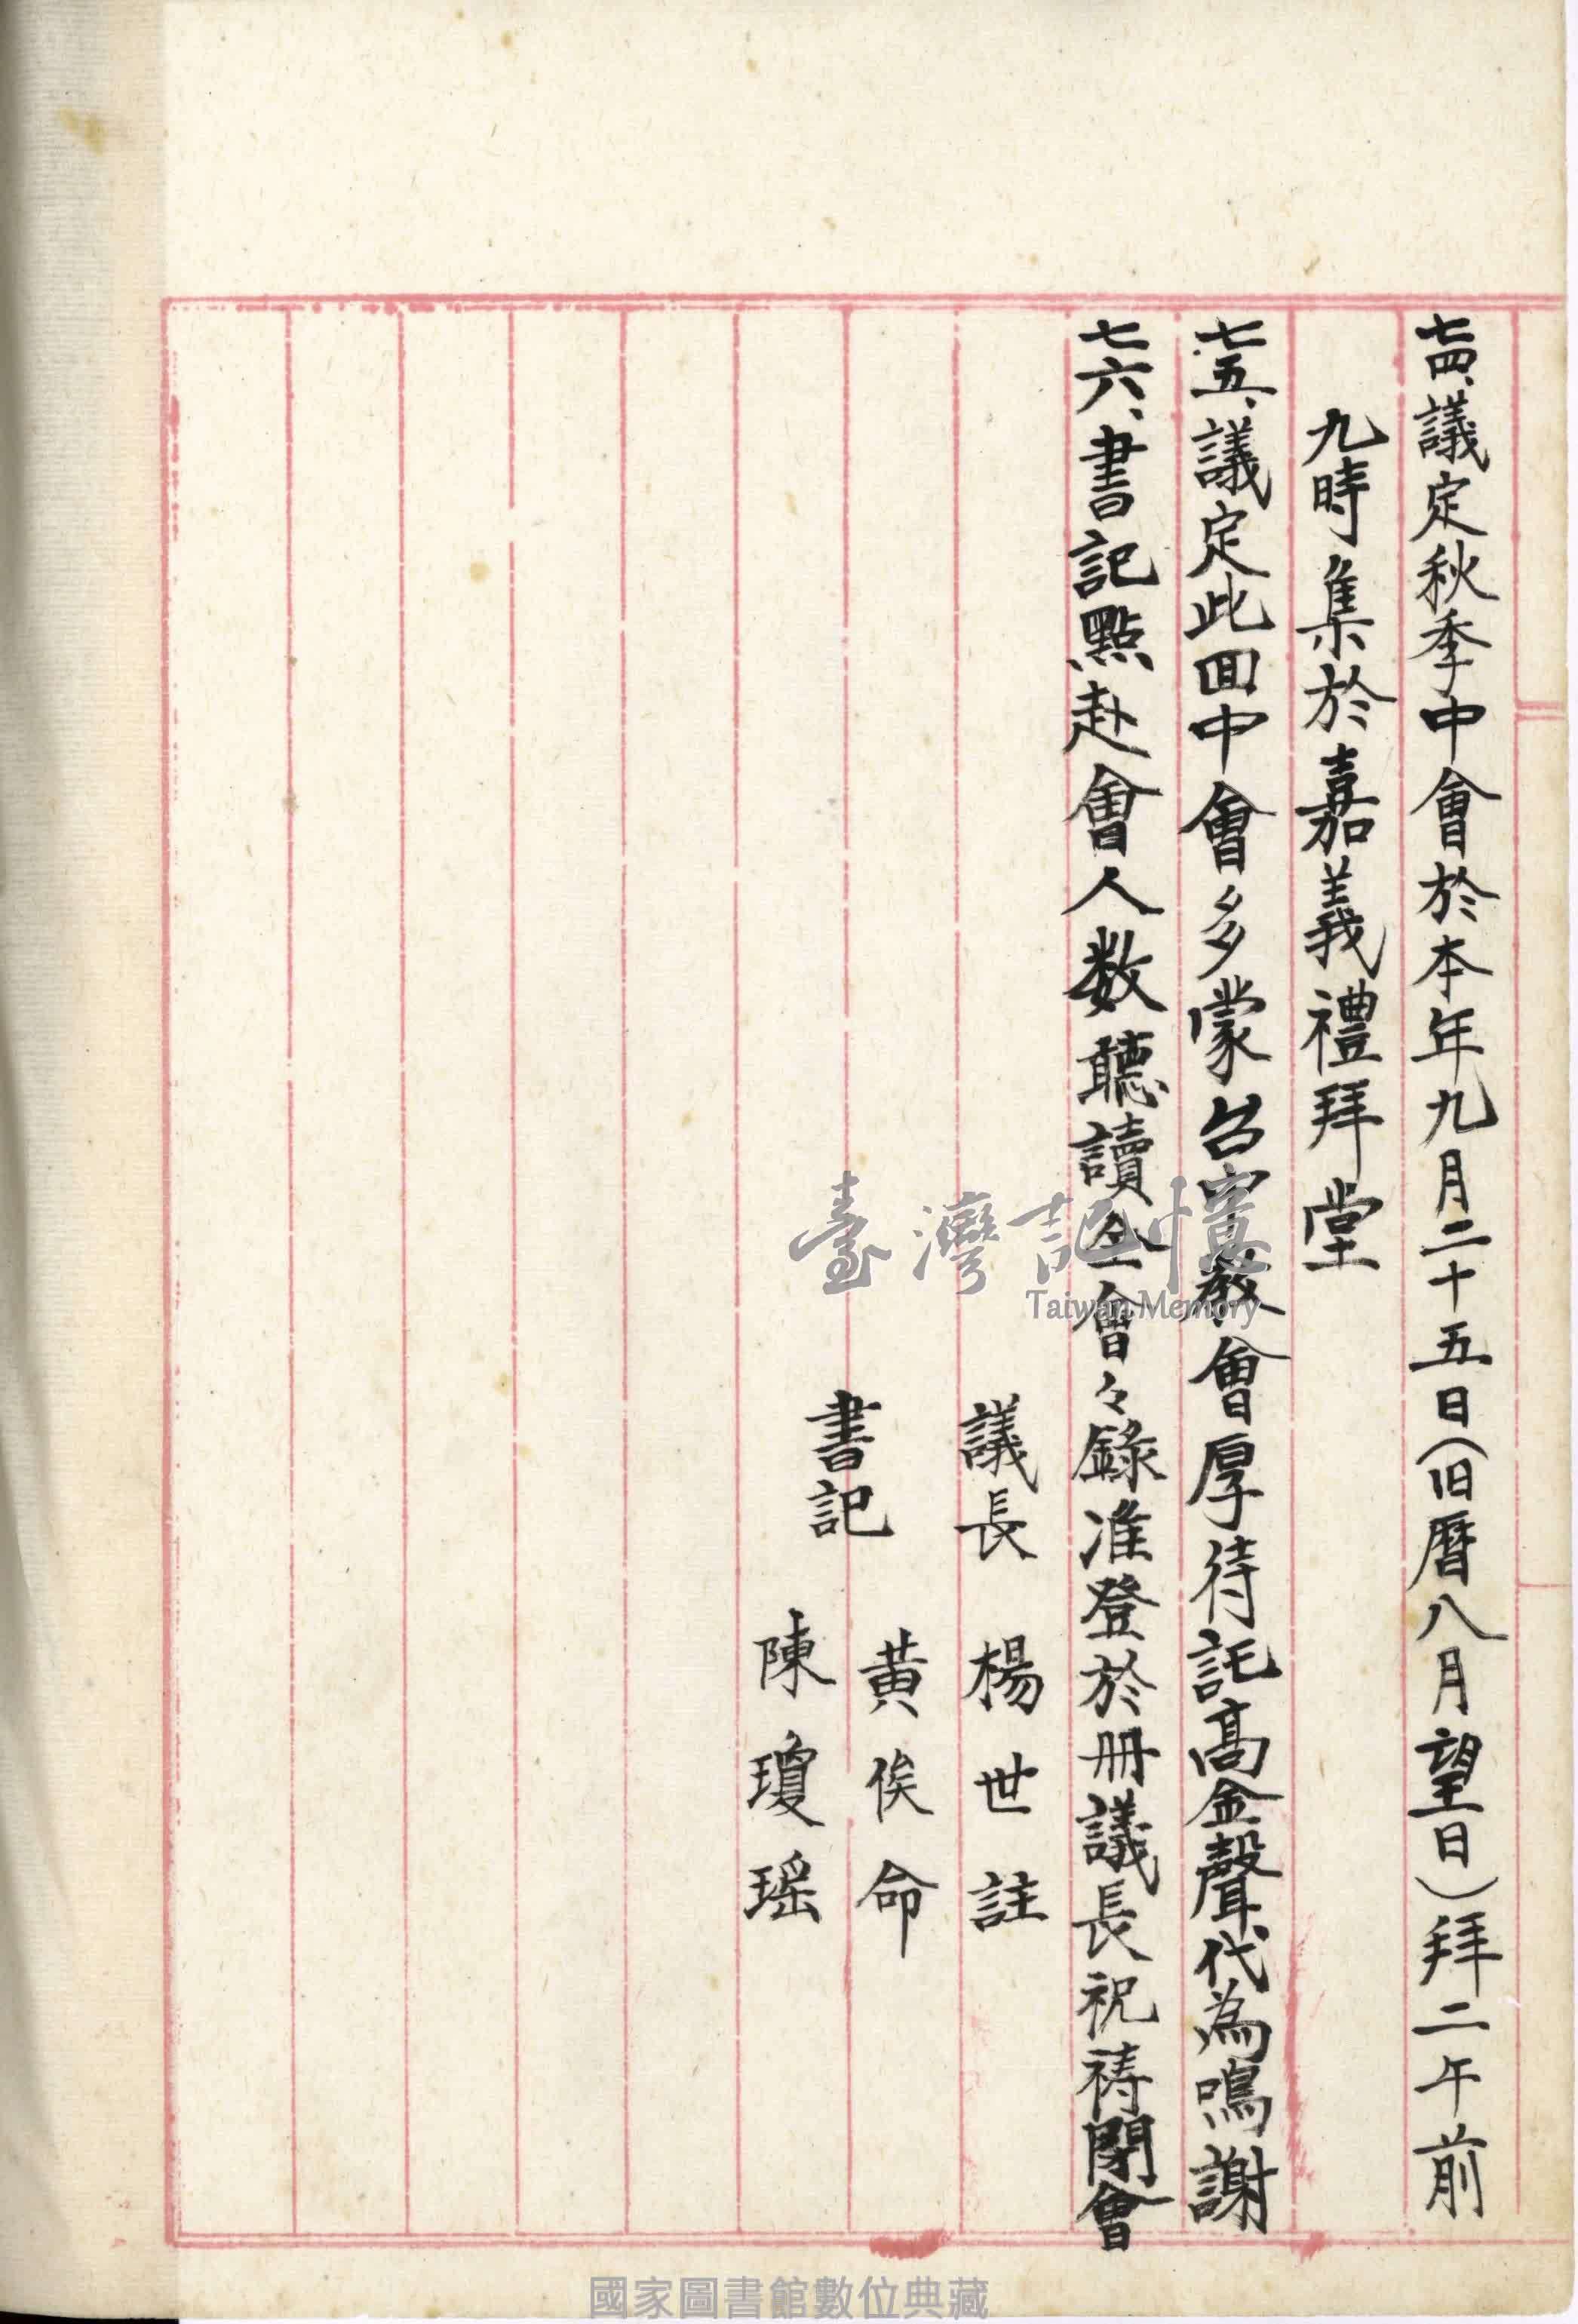 七四、議定秋季中會於本年九月二十五日(旧曆八月望日)拜二午前
九時集於嘉義禮拜堂
七五、議定此回中會多蒙台南教會厚待託高金聲代為鳴謝
七六、書記點赴會人数聽讀全會々錄准登於冊議長祝祷閉會
議長 楊世註
書記 黄俟命
陳瓊瑶
臺灣記憶
Taiwan Memory
國家圖書館數位典藏